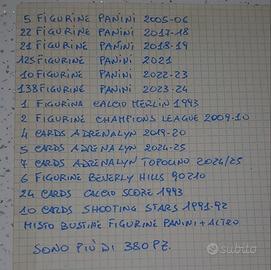 5 FIGURINE PANINI 2005-06
22 FIGURINE PANINI 2017-18
21 FIGURINE PANINI 2018-19
125 FIGURINE PANINI 2021
10 FIGURINE PANINI 2022-23
138 FIGURINE PANINI 2023-24
1 FIGURINA CALCIO MERLIN 1993
2 FIGURINE CHAMPIONS LEAGUE 2009-10
4 CARDS ADRENALYN 2019-20
5 CARDS ADRENALYN 2024-25
7 CARDS ADRENALYN TOPOLINO 2024/25
6 FIGURINE BEVERLY HILLS 90210
24 CARDS CALCIO SCORE 1993
10 CARDS SHOOTING STARS 1991-92
MISTO BUSTINE FIGURINE PANINI + ALTRO
SONO PIÙ DI 380 PZ.
subito